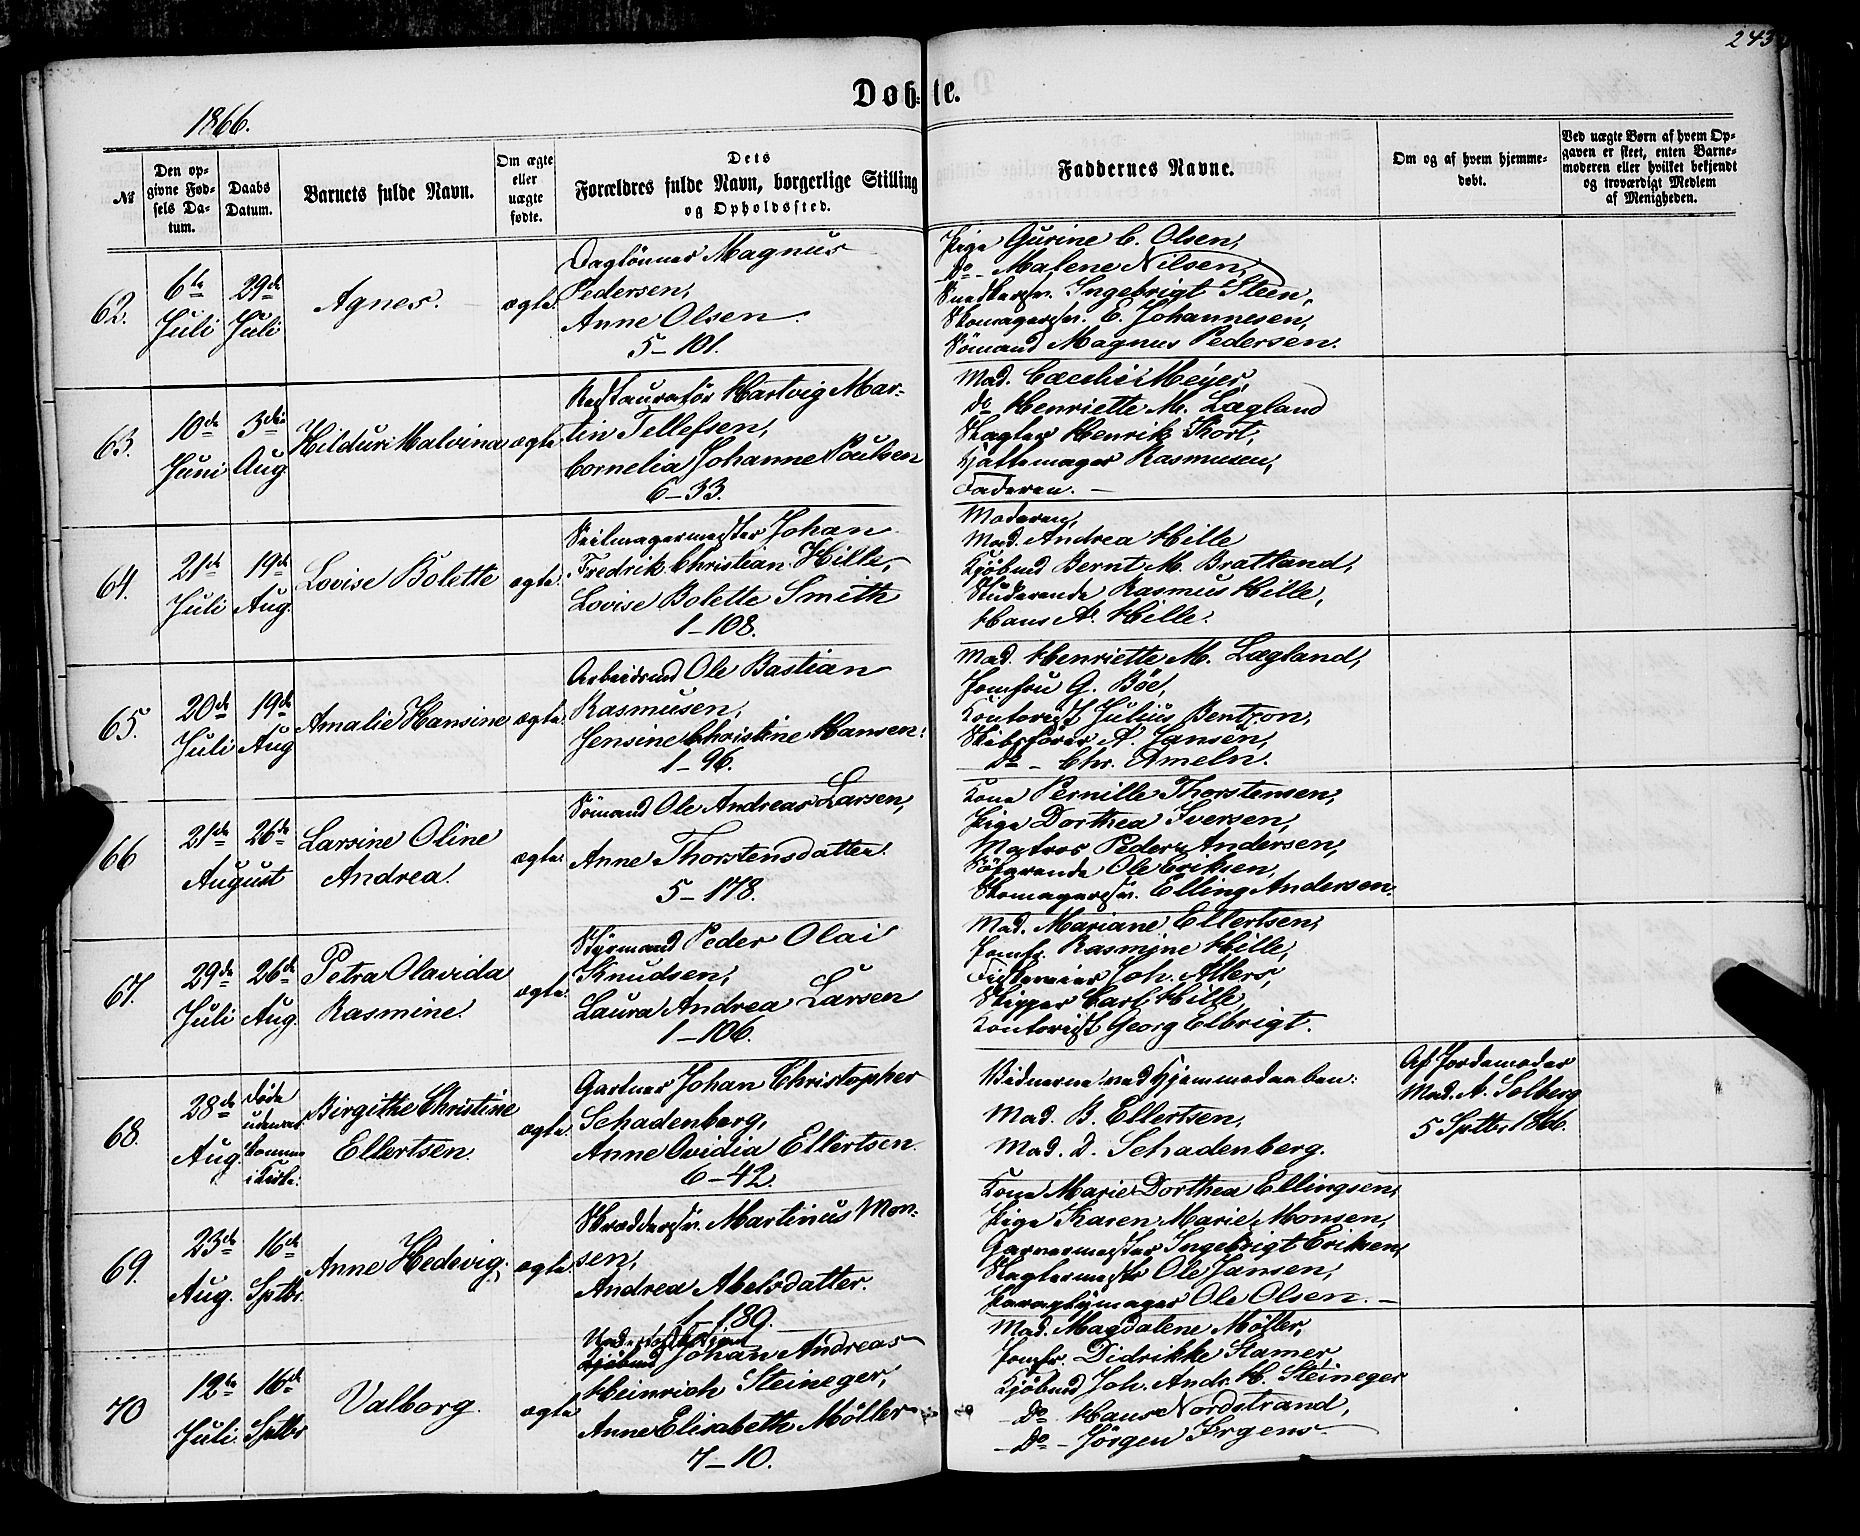 243
Døbte.
1866.
№
Den opgivne Fødsels Datum.
Daabs Datum.
Barnets fulde Navn.
Om ægte eller uægte fødte.
Dets Forældres fulde Navn, borgerlige Stilling og Opholdssted.
Faddernes Navne.
Om og af hvem hjemmedøbt.
Ved uægte Børn af hvem Opgaven er skeet, enten Barnemoderen eller hvilket bekjendt og troværdigt Medlem af Menigheden.
62.
6te Juli
29de Juli
Agnes.
ægte.
Daglønner Magnus
Pedersen,
Anne Olsen.
5–101.
Pige Gurine C. Olsen,
Do– Malene Nilsen,
Snedkersv. Ingebrigt Steen,
Skomagersv. E. Johannesen,
Sømand Magnus Pedersen.
63.
10de Juni
3die Aug
Hilduri Malvina
ægte
Restauratør Hartvig Mar-
tin Tellefsen,
Cornelia Johanne Poulsen
6–33.
Mad. Cæcilie Meyer,
Do Henriette M. Lægland
Slagter Henrik Kort,
Hattemager Rasmusen,
Faderen. –
64.
21de Juli
19de Aug.
Lovise Bolette
ægte.
Seilmagermester Johan
Fredrik Christian Hille,
Lovise Bolette Smith
1–108.
Moderen,
Mad. Andrea Hille
Kjøbmd Bernt M. Bratland,
Studerende Rasmus Hille,
Hans A. Hille.
65.
20de Juli
19de Aug
Amalie Hansine
ægte.
Arbeidsmd Ole Bastian
Rasmusen,
Jensine Christine Hansen.
1–96.
Mad. Henriette M. Lægland,
Jomfru G. Böe,
Kontorist Julius Bentzon,
Skibsfører A. Jansen,
Do – Chr. Ameln.
66
21de 26de
August
Larsine Oline
Andrea.
ægte.
Sömand Ole Andreas Larsen,
Anne Thorstensdatter.
5–178.
Kone Pernille Thorstensen,
Pige Dorthea Iversen,
Matros Peder Andersen,
Söfarende Ole Eriksen,
Skomagersv. Elling Andersen.
67.
29de Juli
26de Aug.
Petra Olavida
Rasmine.
ægte.
Styrmand Peder Olai
Knudsen,
Laura Andrea Larsen
1–106.
Mad. Mariane Ellertsen,
Jomfr. Rasmine Hille,
Joh. Allers,
Skipper Carl Hille,
Kontorist Georg Elbrigt.
68.
28de Aug.
Døde
uden at
komme
i Kirke.
Birgithe Christine
Ellertsen.
ægte.
Gartner Johan Christopher
Schadenberg,
Anne Ovidia Ellertsen.
6–42.
Vidnerne ved Hjemmedaaben:
Mad. B. Ellertsen,
Mad. D. Schadenberg.
Af Jordemoder
Mad. A. Selberg
5 Septbr 1866.
69.
23de Aug.
16de Sptbr.
Anne Hedevig.
ægte.
Skræddersv. Martinus Mon-
sen,
Andrea Abelsdatter.
1–189.
Kone Marie Dorthea Ellingsen,
Pige Karen Marie Monsen,
Garvermester Ingebrigt Eriksen,
Slagtermester Ole Jansen,
Paraplymager Ole Olsen. –
70
12te Juli
16de Sptbr
Valborg.
ægte
Johan Andreas
Heinrich Steineger,
Anne Elisabeth Möller
7–10.
Mad. Magdalene Møller,
Jomfr. Didrikke Stamer
Kjöbmd Joh. Andr. H. Steineger
– Do – Hans Nordstrand,
– Do – Jörgen Irgens